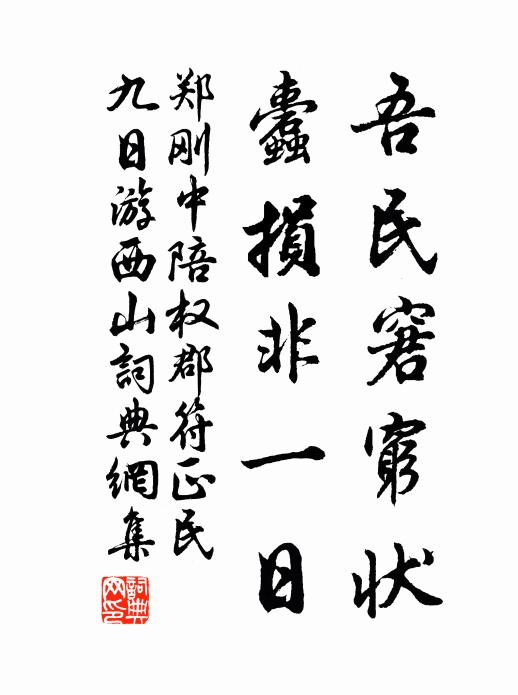 吾民窘窮状
蠹損非一日
郑刚中陪权郡符正民
九日游西山詞典網集
詞典网印